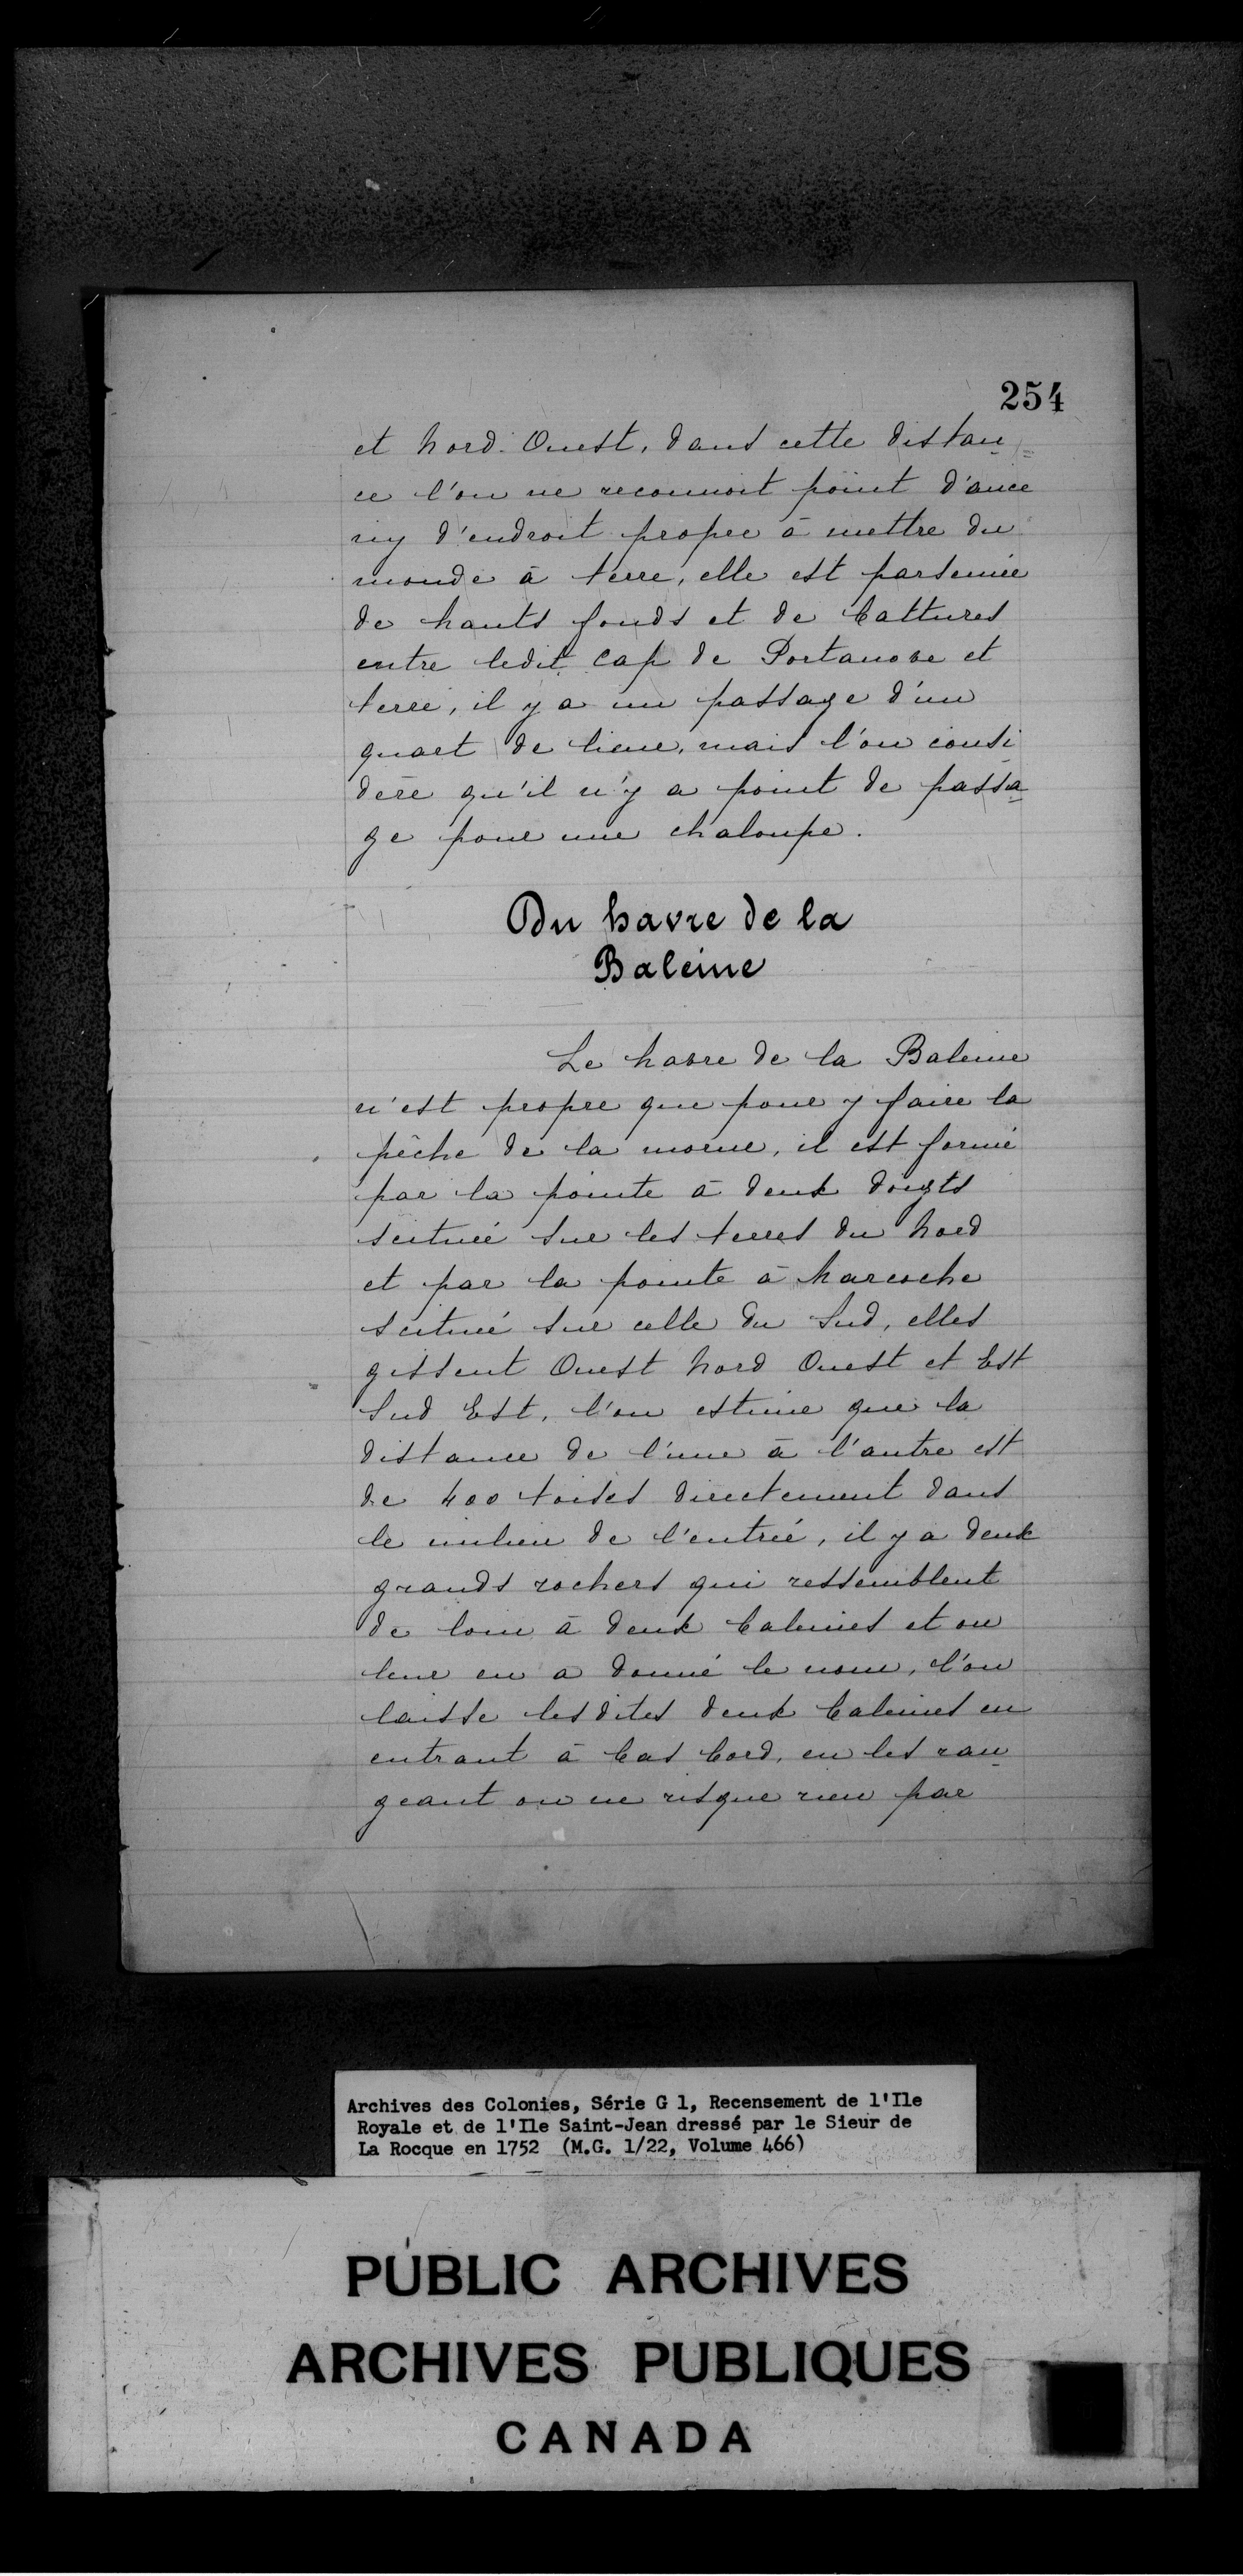 254
et Nord Ouest, dans cette distan=
ce l'on ne reconnoit point d'ance
ny d'endroit propre à mettre du
monde à terre, elle est parsemée
de hauts fonds et de battures
entre ledit Cap de Portanove et
terre, il y a un passage d'un
quart de lieue, mais l'on consi
dère qu'il n'y a point de passa
ge pour une chaloupe.
Du havre de la
Baleine
Le havre de la Baleine
n'est propre que pour y faire la
pêche de la morue, il est formé
par la pointe à deux doigts
scituée sur les terres du Nord
et par la pointe à Marcoche
scituée sur celle du Sud, elles
gissent Ouest Nord Ouest et Est
Sud Est, l'on estime que la
distance de l'une à l'autre est
de 400 toises directement dans
le milieu de l'entrée, il y a deux
grands rochers qui ressemblent
de loin à deux baleines et on
leur en a donné le nom, l'on
laisse lesdites deux baleines en
entrant à bas bord, en les ran
geant on ne risque rien par
Archives des Colonies, Série G 1, Recensement de l'Ile
Royale et de l'Ile Saint-Jean dressé par le Sieur de
La Rocque en 1752 (M.G. 1/22, Volume 466)
PUBLIC ARCHIVES
ARCHIVES PUBLIQUES
CANADA